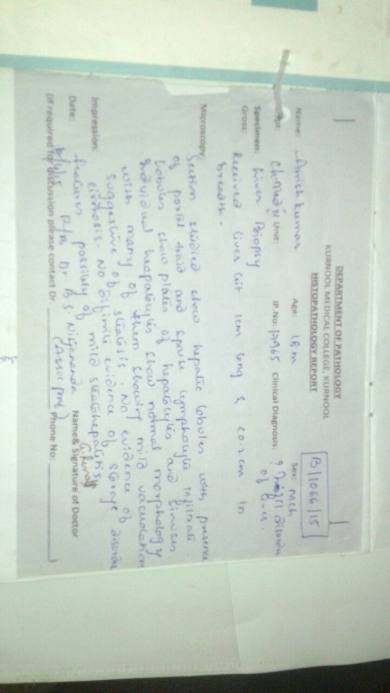 DEPARTMENT OF PATHOLOGY
KURNOOL MEDICAL COLLEGE, KURNOOL
HISTOPATHOLOGY REPORT
B/1066/15
Name: kumar Age: 18m Sex: mch
Unit: IP No: Clinical Diagnosis: ?
Specimen: Liver Biopsy of
Gross: Received liver 1cm long & <0.2cm in
breadth.
Microscopy: Section studied show hepatic lobules with presence
of portal triad and sparse lymphocytic infiltrate.
lobules show plates of hepatocytes and
Individual hepatocytes show normal morphology
with many of them showing mild vacuolation
suggestive of steatosis. No evidence of
cirrhosis. No definite evidence of storage disorder
Impression: features possibly of mild steatohepatitis
Date: Dr B S
Name & Signature of Doctor
(If required for discussion please contact Dr Phone No: )